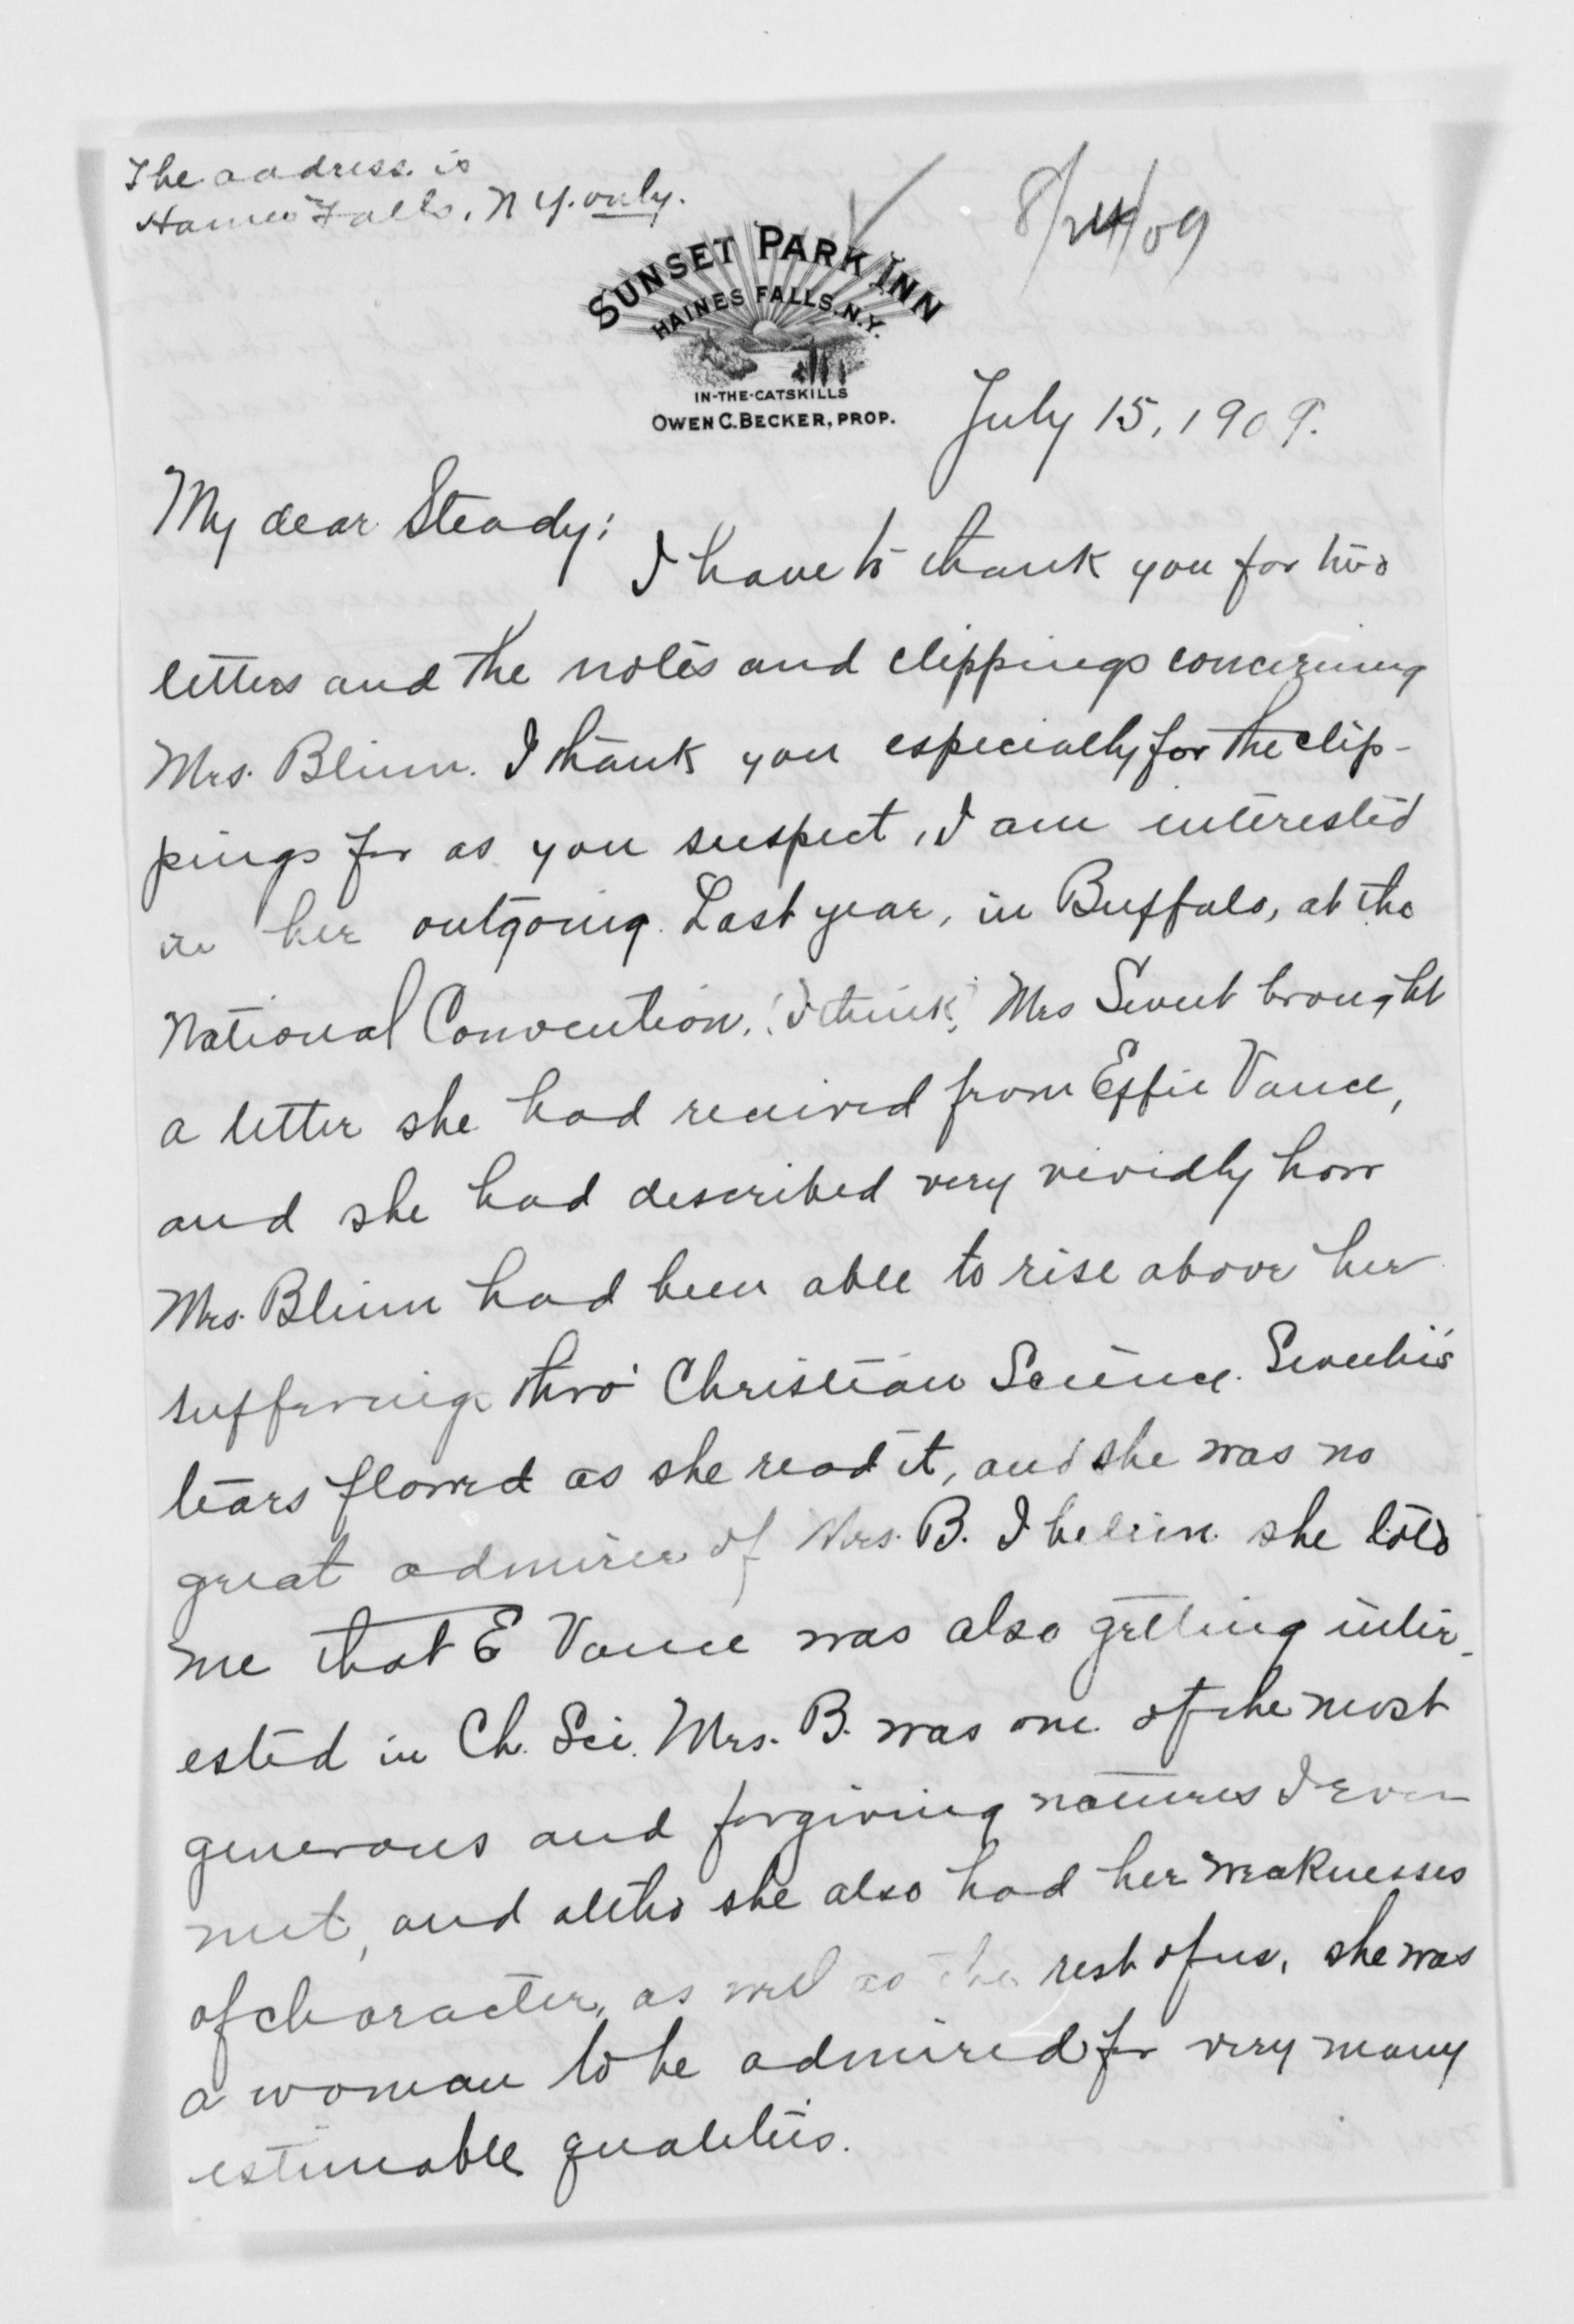 The address is
Haines Falls, N Y. only.
8/24/09
SUNSET PARK INN
HAINES FALLS, N.Y.
IN-THE-CATSKILLS
OWEN C. BECKER, PROP.
July 15, 1909.
My dear Steady:
I have to thank you for two
letters and the notes and clippings concerning
Mrs. Blinn. I thank you especially for the clip-
pings for as you suspect, I am interested
in her outgoing. Last year, in Buffalo, at the
National Convention, (I think) Mrs Sweet brought
a letter she had received from Effie Vance,
and she had described very vividly how
Mrs. Blinn had been able to rise above her
sufferings thro' Christian Science. Sweetie's
tears flowed as she read it, and she was no
great admirer of Mrs. B. I believe she told
me that E Vance was also getting inter-
ested in Ch. Sci. Mrs. B. was one of the most
generous and forgiving natures I ever
met, and altho she also had her weaknesses
of character, as well as the rest of us, she was
a woman to be admired for very many
estimable qualities.